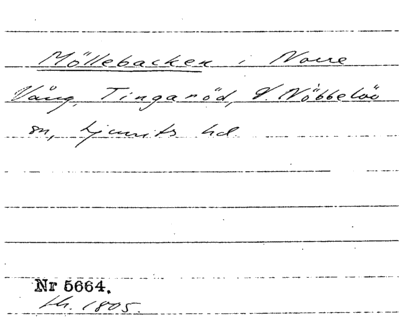 Möllebacken i Norre
Vång, Tingaröd, V. Nöbbelöv
sn, Ljunits hd.
Nr 5664.
1805.